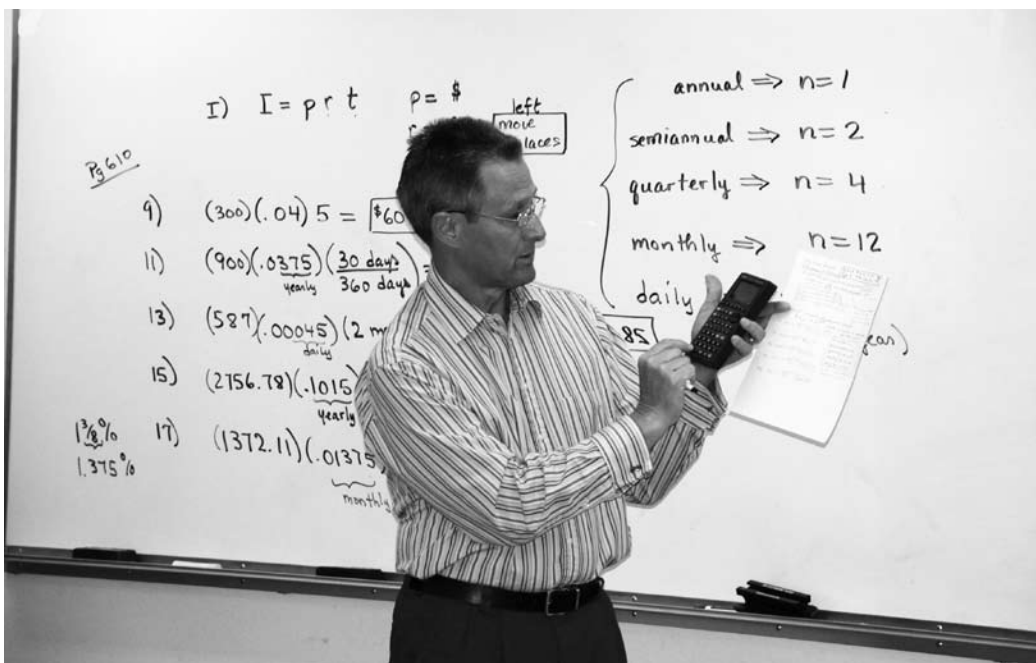 I) I = p r t p = $
left
move
laces
Pg 610
9) (300)(.04) 5 = $60
11) (900)(.0375)(30 days/360 days) =
yearly
13) (587)(.00045)(2 m
daily
85
15) (2756.78)(.1015)
yearly
1 3/8 %
1.375 %
17) (1372.11)(.01375
monthly
annual ⇒ n = 1
semiannual ⇒ n = 2
quarterly ⇒ n = 4
monthly ⇒ n = 12
daily
ear)